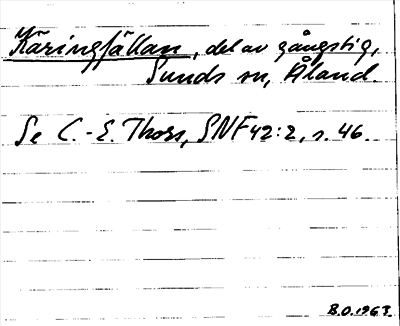 Käringfällan, del av gångstig,
Sunds sn, Åland.
Se C.-E. Thors, SNF 42:2, s. 46.
B.O. 1963.